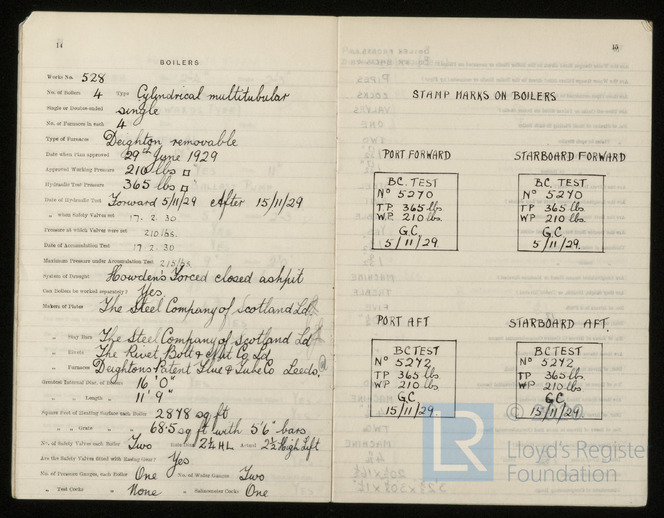 14
BOILERS
Works No. 528
No. of Boilers 4 Type Cylindrical multitubular
Single or Double-ended single
No. of Furnaces in each 4
Type of Furnaces Deighton removable
Date when Plan approved 29th June 1929
Approved Working Pressure 210 lbs □"
Hydraulic Test Pressure 365 lbs □"
Date of Hydraulic Test Forward 5/11/29 After 15/11/29
„ when Safety Valves set 17. 2. 30
Pressure at which Valves were set 210 lbs.
Date of Accumulation Test 17 2. 30
Maximum Pressure under Accumulation Test 215 lbs
System of Draught Howden's Forced closed ashpit
Can Boilers be worked separately? Yes
Makers of Plates The Steel Company of Scotland Ld
„ Stay Bars The Steel Company of Scotland Ld
„ Rivets The Rivet Bolt & Nut Co Ld
„ Furnaces Deightons Patent Flue & Tube Co Leeds.
Greatest Internal Diam. of Boilers 16' 0"
„ „ Length „ 11' 9"
Square Feet of Heating Surface each Boiler 2878 sq ft
„ „ Grate „ „ 68.5 sq ft with 5'6" bars
No. of Safety Valves each Boiler Two 2½ HL Actual 2½ High Lift
Are the Safety Valves fitted with Easing Gear? Yes
No. of Pressure Gauges, each Boiler One No. of Water Gauges Two
„ Test Cocks „ None „ Salinometer Cocks One
15
STAMP MARKS ON BOILERS
PORT FORWARD
BC. TEST
No 5270
TP 365 lbs.
WP. 210 lbs.
G.C
5/11/29.
STARBOARD FORWARD
BC. TEST
No 5270
TP 365 lbs.
WP. 210 lbs.
G.C
5/11/29.
PORT AFT
BC TEST
No 5272
TP 365 lbs
WP 210 lbs
GC
15/11/29
STARBOARD AFT.
BC TEST
No 5272
TP 365 lbs
WP 210 lbs
GC
15/11/29.
LR
©
Lloyd's Register
Foundation